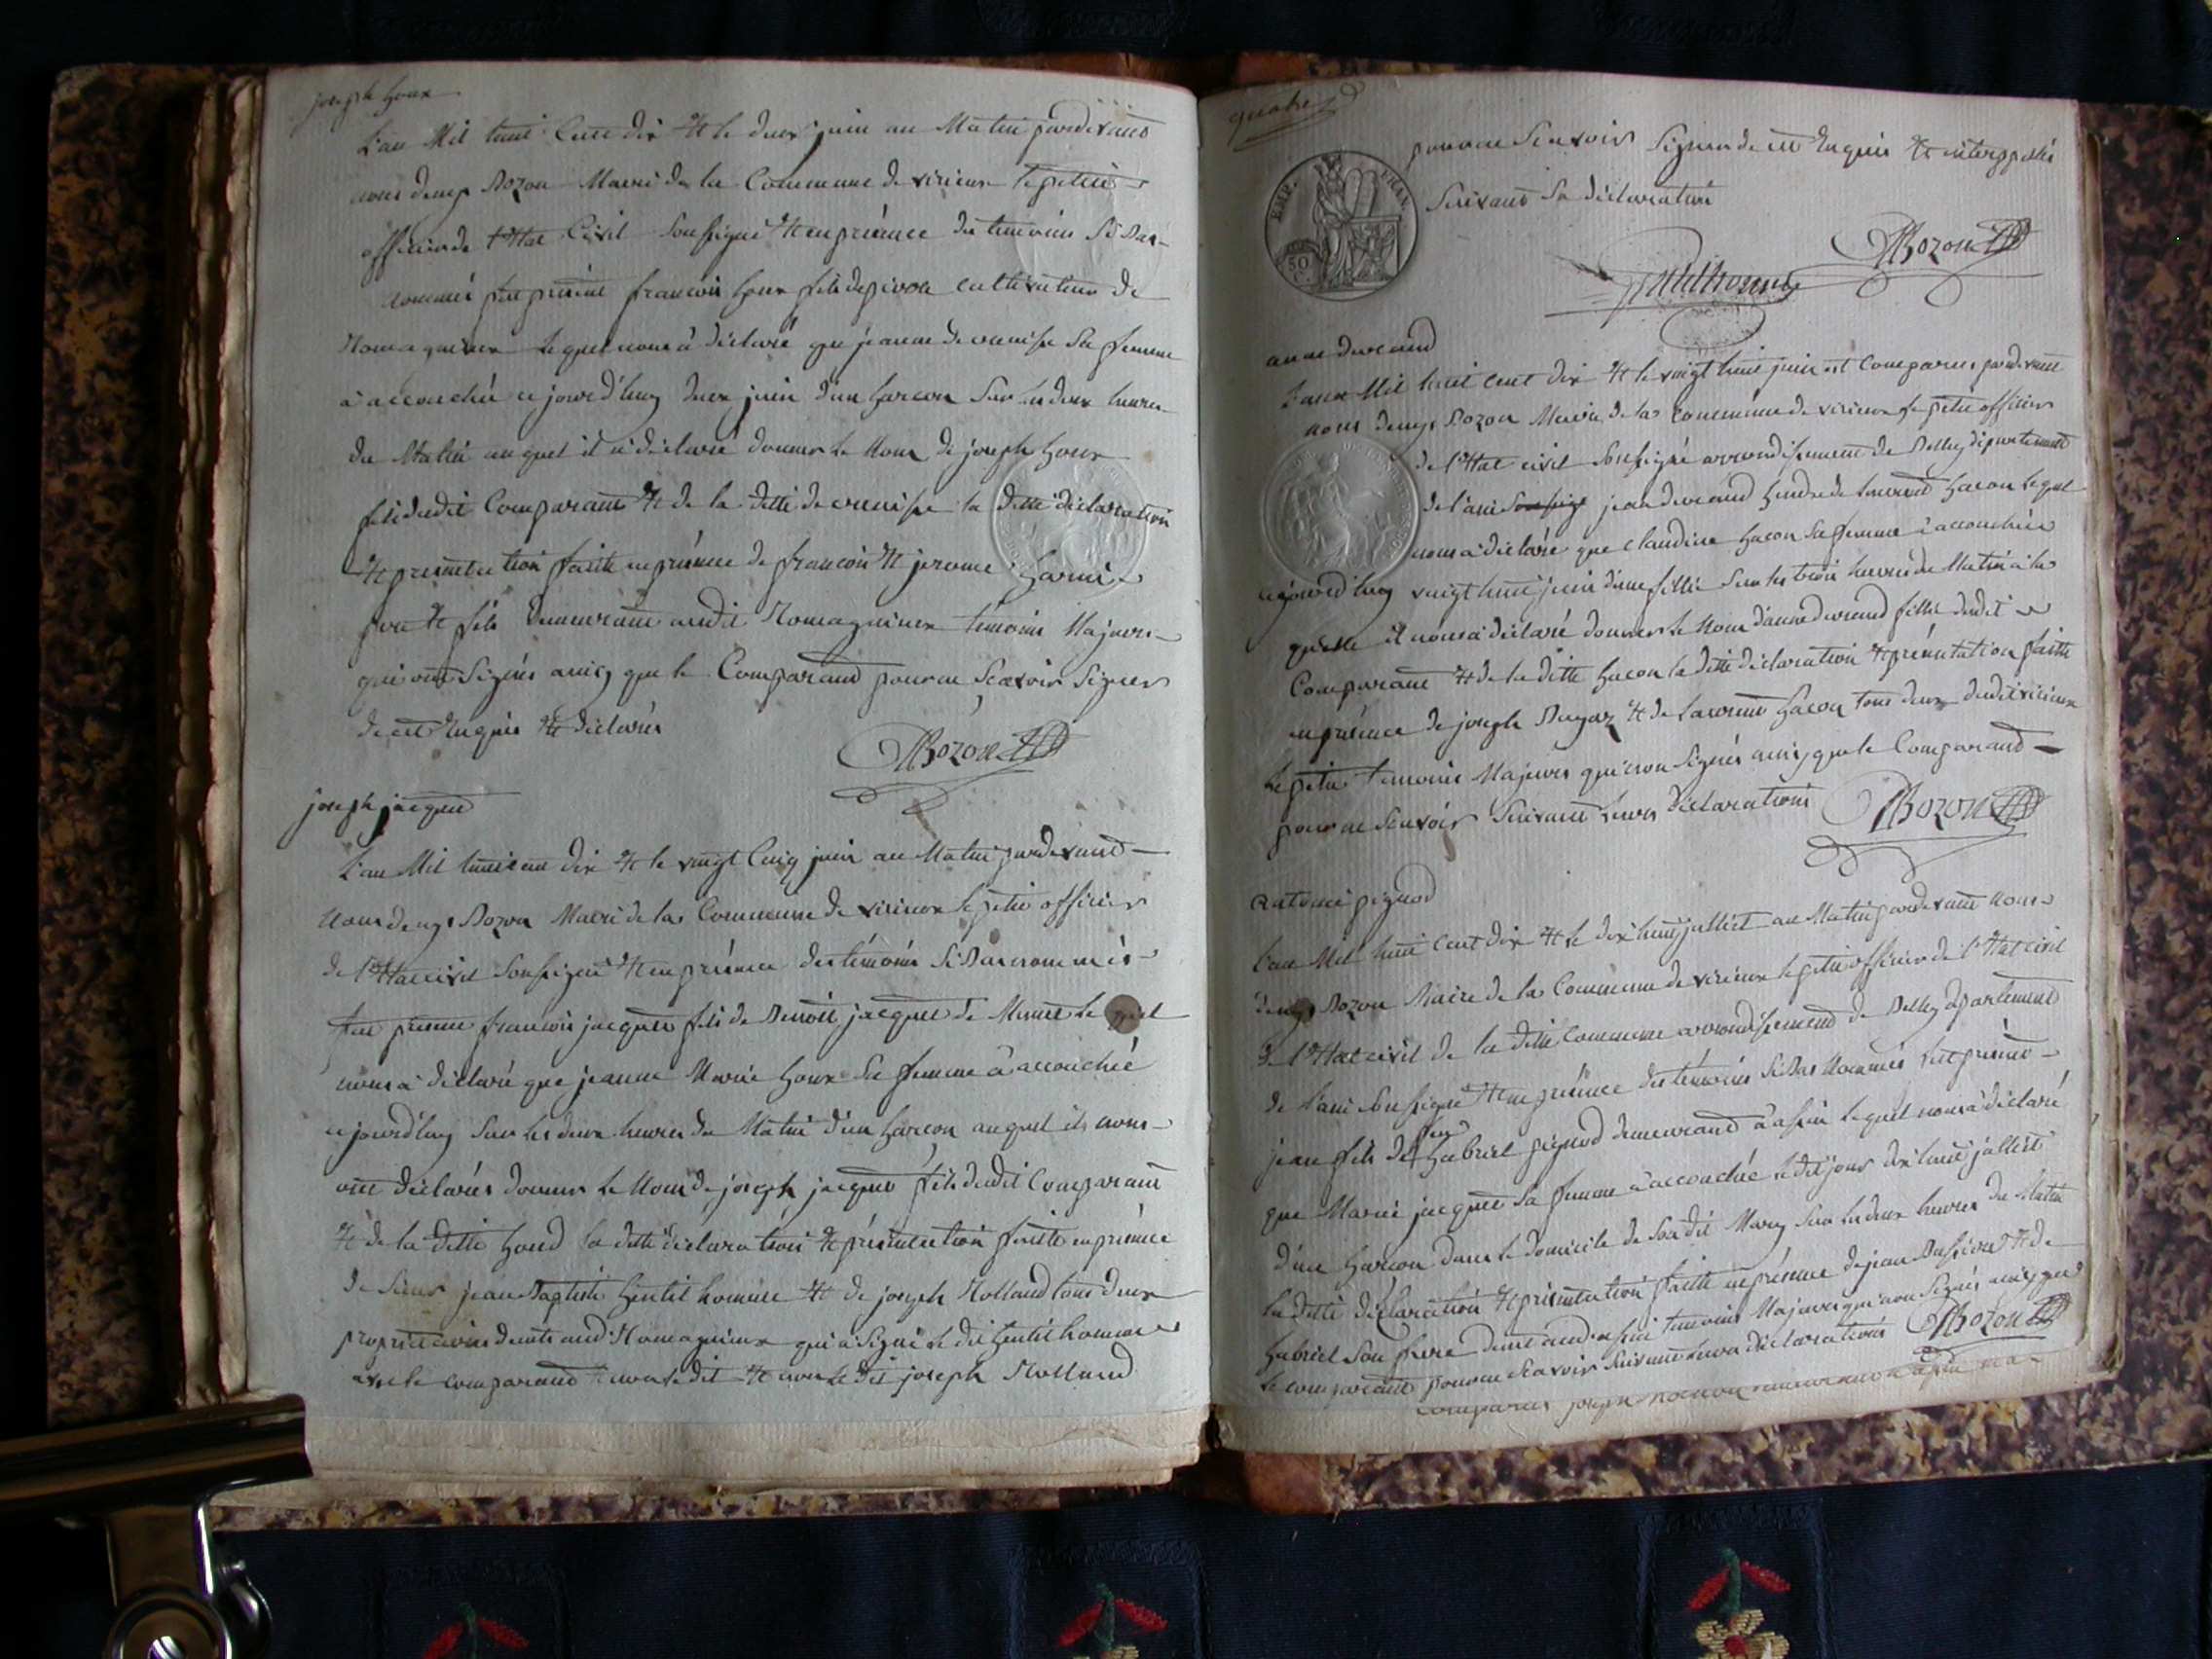 joseph goux
L'an Mil huit Cent dix & le deux juin au Matin pardevant
nous denys Bozon Maire de la Commune de virieux le petit
officier de l'Etat Civil Soussigné & en présence des temoins Si Bas
nommés fut présent francois goux fils de pierre cultivateur de
Romagnieux lequel nous à déclaré que jeanne sa femme
à accouchée ce jourd'huy deux juin d'un garcon Sur les deux heures
du Matin auquel il a déclaré donner le Nom de joseph goux
fils dudit Comparant & de la ditte la ditte déclaration
& présentation faitte en présence de francois & jerome
pere & fils demeurant audit Romagnieux temoins Majeurs
qui ont Signés ainsy que le Comparand pour ne Scavoir Signer
de cet Enquis & déclarés
Bozon
joseph jacquet
L'an Mil huit cent dix & le vingt Cinq juin au Matin pardevant
Nous denys Bozon Maire de la Commune de virieux le petit officier
de l'Etat civil Soussigné & en présence des témoins Si Bas nommés
fut présent francois jacquet fils de Benoit jacquet de lequel
nous à déclaré que jeanne Marie goux Sa femme à accouchée
ce jourd'huy Sur les deux heures du Matin d'un garcon auquel ils nous
ont déclarés donner le Nom de joseph jacquet fils dudit Comparant
& de la ditte goux la ditte déclaration & présentation faitte en présence
de Sieur jean Baptiste gentil homme & de joseph Rolland tous deux
proprietaires audit Romagnieux qui à Signé le dit gentil homme
le comparand & non le dit joseph Rolland
quatre
pour ne Scavoir Signer de cet Enquis & interppellé
Suivant Sa déclaration
Bozon
anne durand
L'an Mil huit cent dix & le vingt huit juin est Comparus pardevant
nous denys Bozon Maire de la Commune de virieux le petit officier
de l'Etat civil Soussigné arrondissement de Belley département
de l'ain jean durand gendre de Laurent gacon lequel
nous à déclaré que Claudine gacon Sa femme à accouchée
ce jourd'huy vingt huit juin d'une fillie Sur les trois heures du Matin à la
quelle il nous a déclaré donner le Nom d'anne durand fillie dudit
Comparant & de la ditte gacon la ditte déclaration & présentation faitte
en présence de joseph & de Laurent gacon tous deux dudit virieux
le petit temoins Majeurs qui n'on Signés ainsy que le Comparand
pour ne Scavoir Suivant leurs déclarations
Bozon
antoine pignod
L'an Mil huit Cent dix & le dix huit juilliet au Matin pardevant nous
denys Bozon Maire de la Commune de virieux le petit officier de l'Etat civil
de l'Etat civil de la ditte Commune arrondissement de Belley département
de l'ain Soussigné & en présence des témoins Si Bas Nommés fut présent
jean fils de feu gabriel pignod demeurand à assin lequel nous à déclaré
que Marie jacquet Sa femme à accouchée le dit jour dix huit juilliet
d'un garcon dans le domicile de Son dit Mary Sur les deux heures du Matin
la ditte déclaration & présentation faitte en présence de jean & de
gabriel Son frere audit assin temoins Majeurs qui n'on Signés ainsy que
le comparant pour ne Scavoir Suivant leurs déclarations
Bozon
comparus joseph
EMP. FRAN.
50 C.